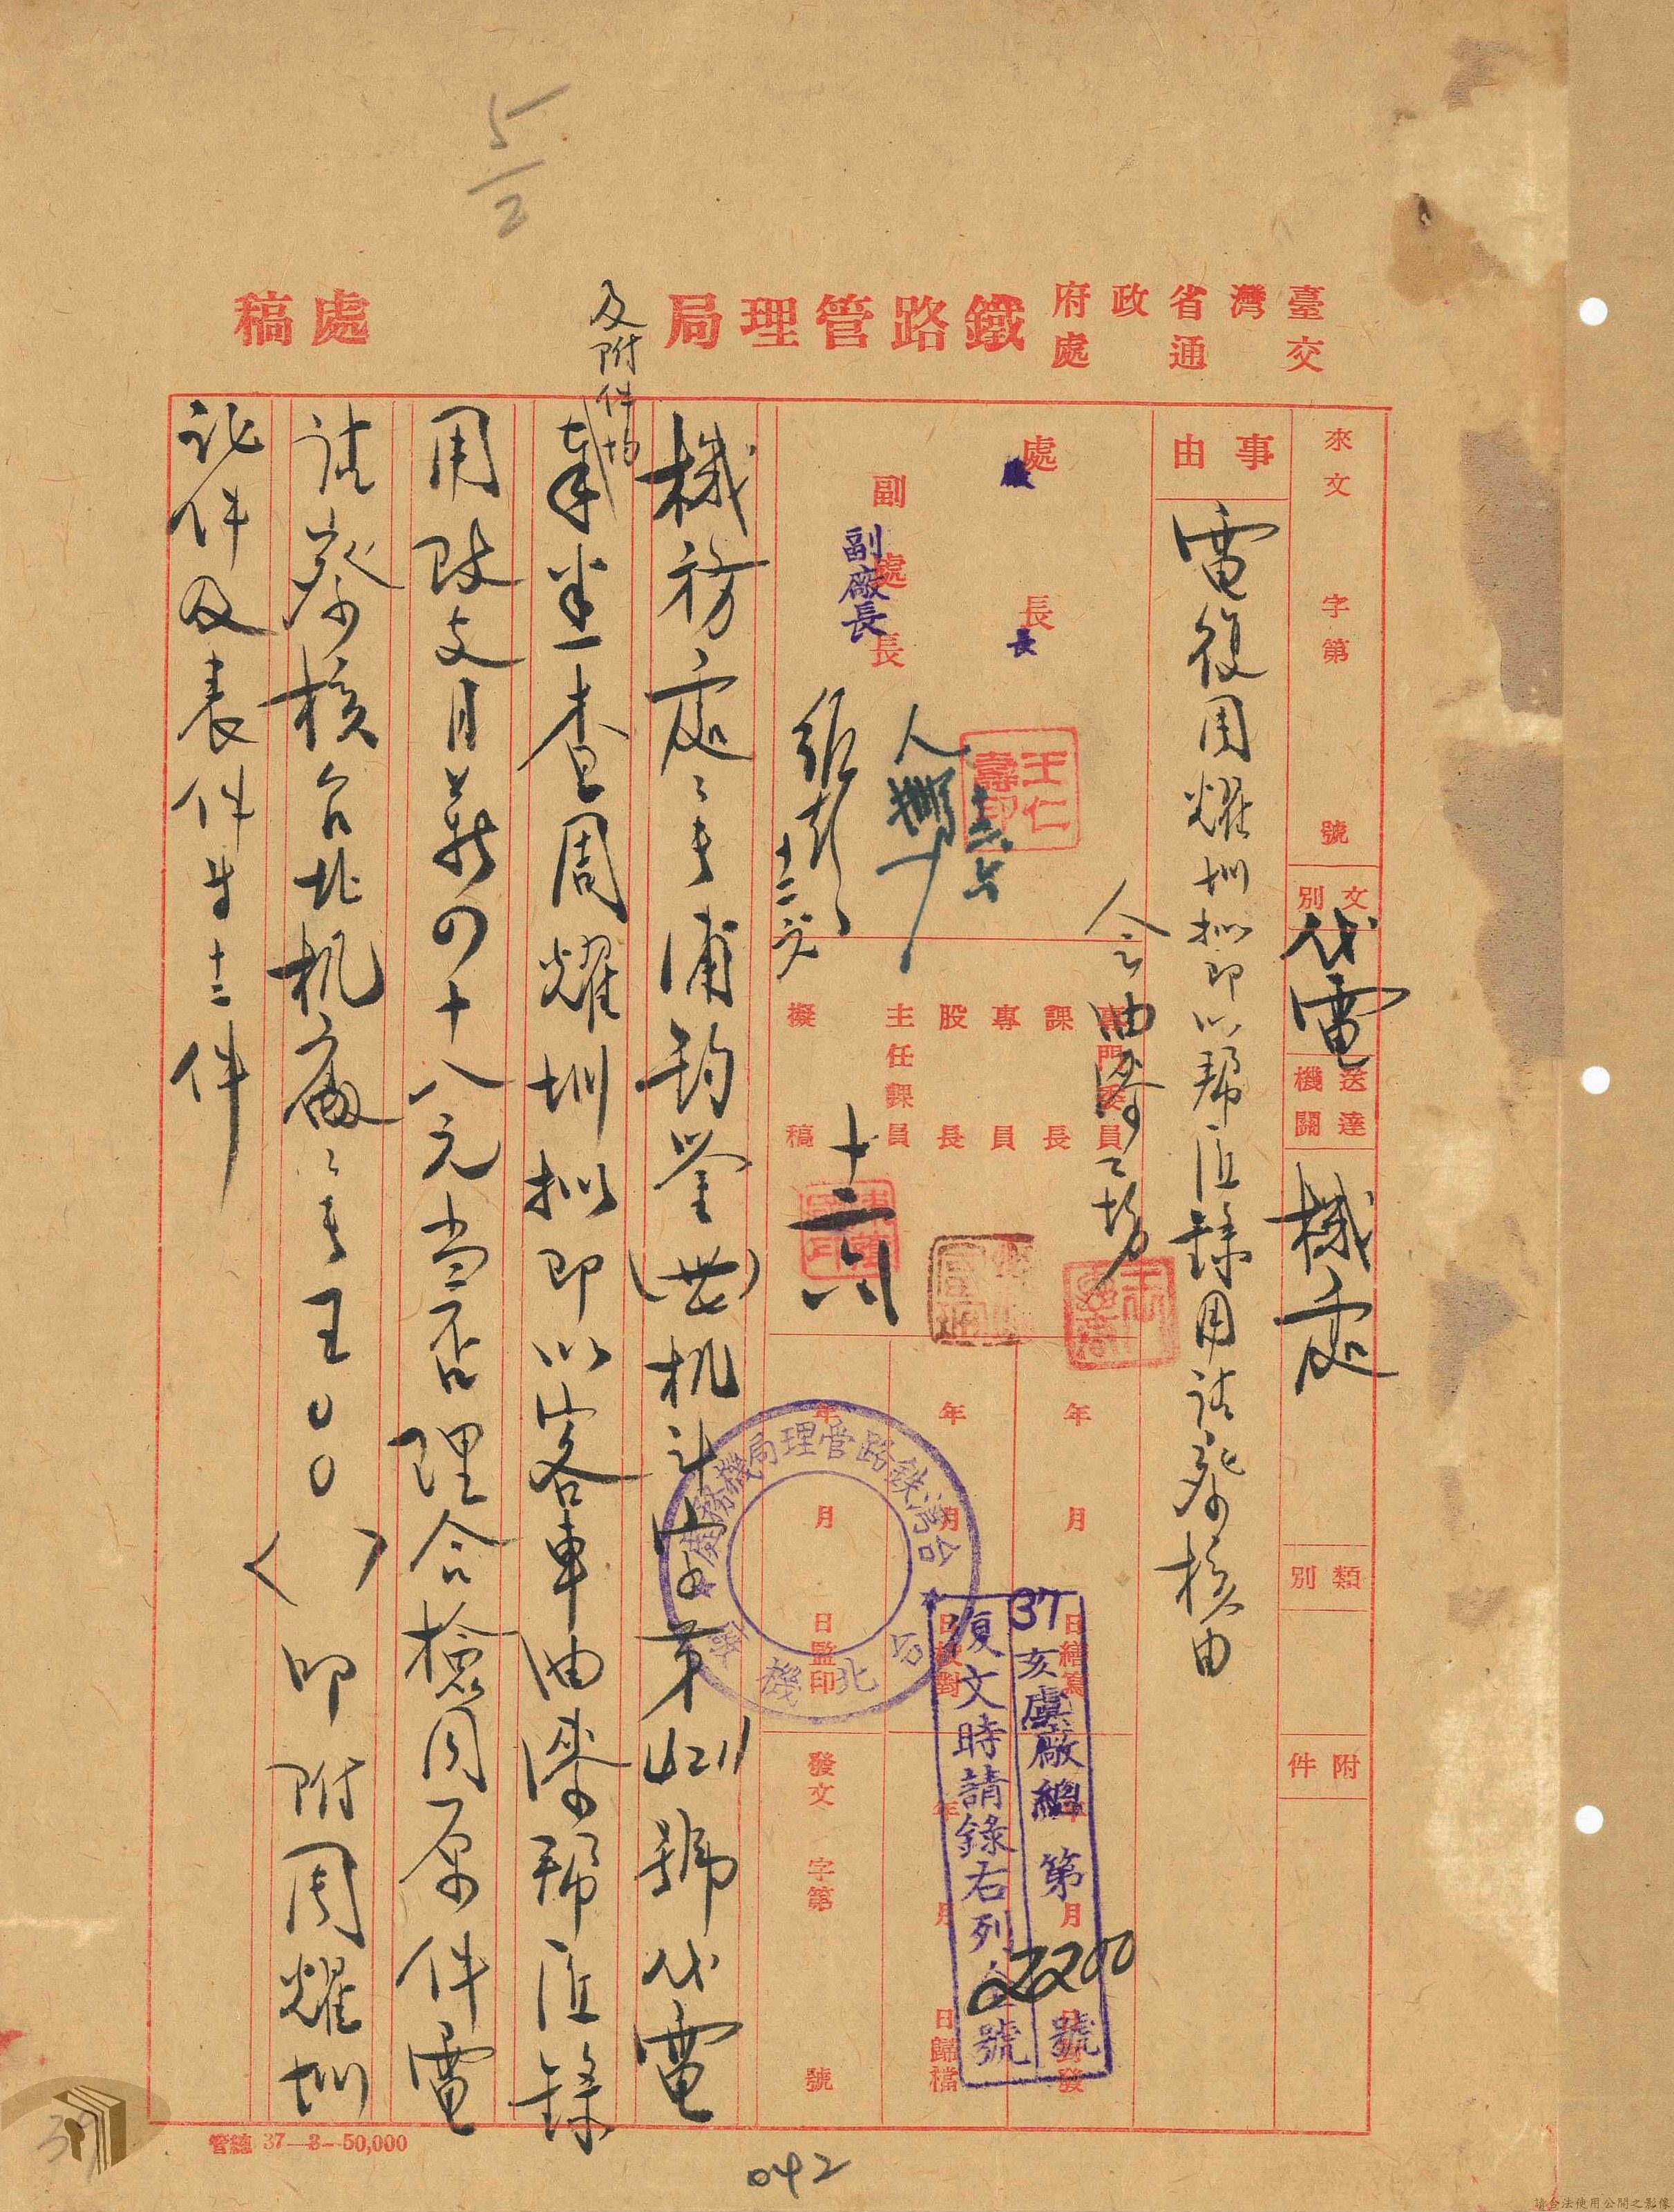 5/2
臺灣省政府交通處
鐵路管理局
處稿
來文 字第 號
文別 代電
送達機關 機處
類別
附件
事由
電復周耀圳擬即以幫匠錄用請察核由
會油漆工場
處長
廠長
副處長
副廠長
王仁壽印
課長
專員
股長
主任課員
擬稿
十二六
年 月 日繕寫
年 月 日校對
年 月 日監印
年 月 日封發
年 月 日歸檔
發文 字第 號
台灣鉄路管理局機務處
台北機廠
37亥虞廠總第2200號
復文時請錄右列
號
機務處處長浦鈞鑒(卅)機計字第 號代電
及附件均
奉悉查周耀圳擬即以客車油漆幫匠錄
用改支月薪四十八元當否理合檢同原件電
請察核台北機廠廠長王〇〇〈 〉印附周耀圳
證件及表件等十二件
管總 37-8-50,000
042
39
請合法使用公開之影像